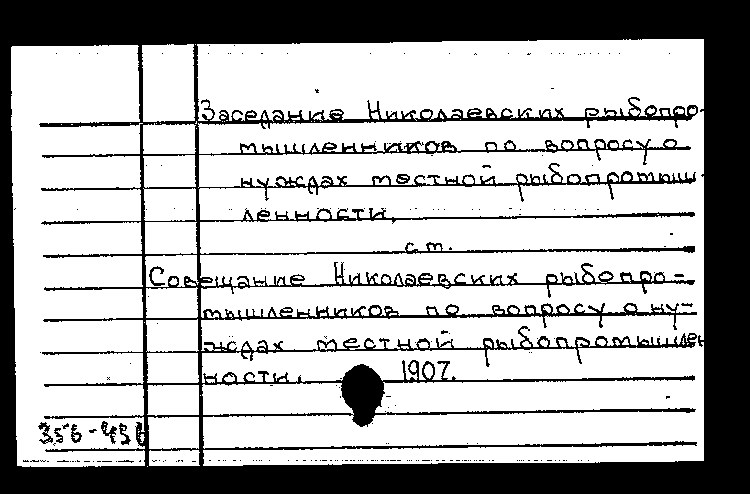 Заседание Николаевских рыбопро-
мышленников по вопросу о
нуждах местной рыбопромыш-
ленности,
см.
Совещание Николаевских рыбопро-
мышленников по вопросу о ну-
ждах местной рыбопромышлен
ности. 1907.